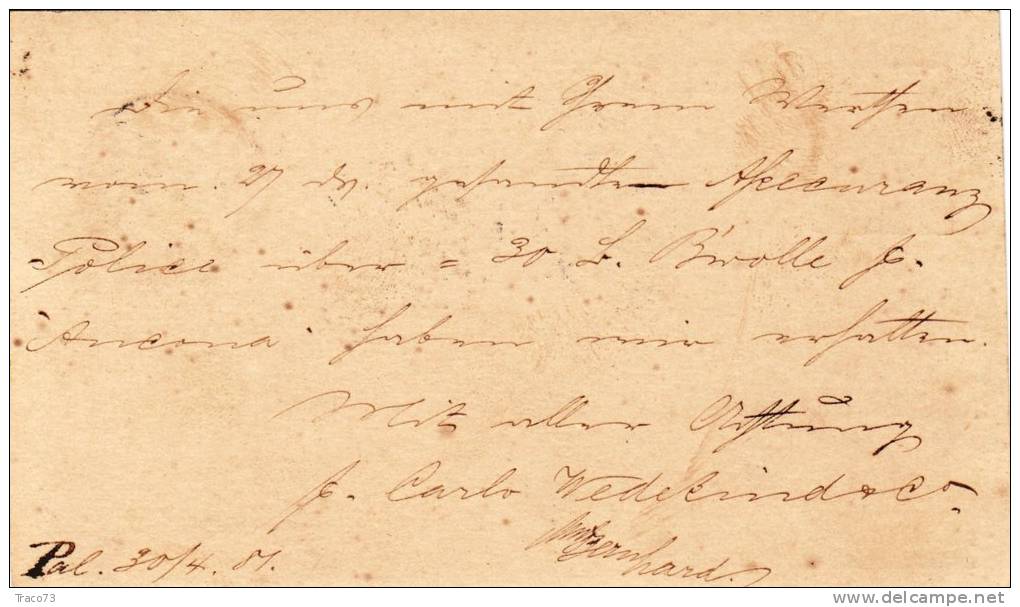 Die uns mit Ihrem Werthen
vom 27 ds. gesandte Assecuranz
Police über = 30 L. B'wolle p.
"Ancona" haben wir erhalten.
Mit aller Achtung
p. Carlo Wedekind & Co.
Bernhard.
Pal. 30/4. 81.
Traco73
delcampe.net